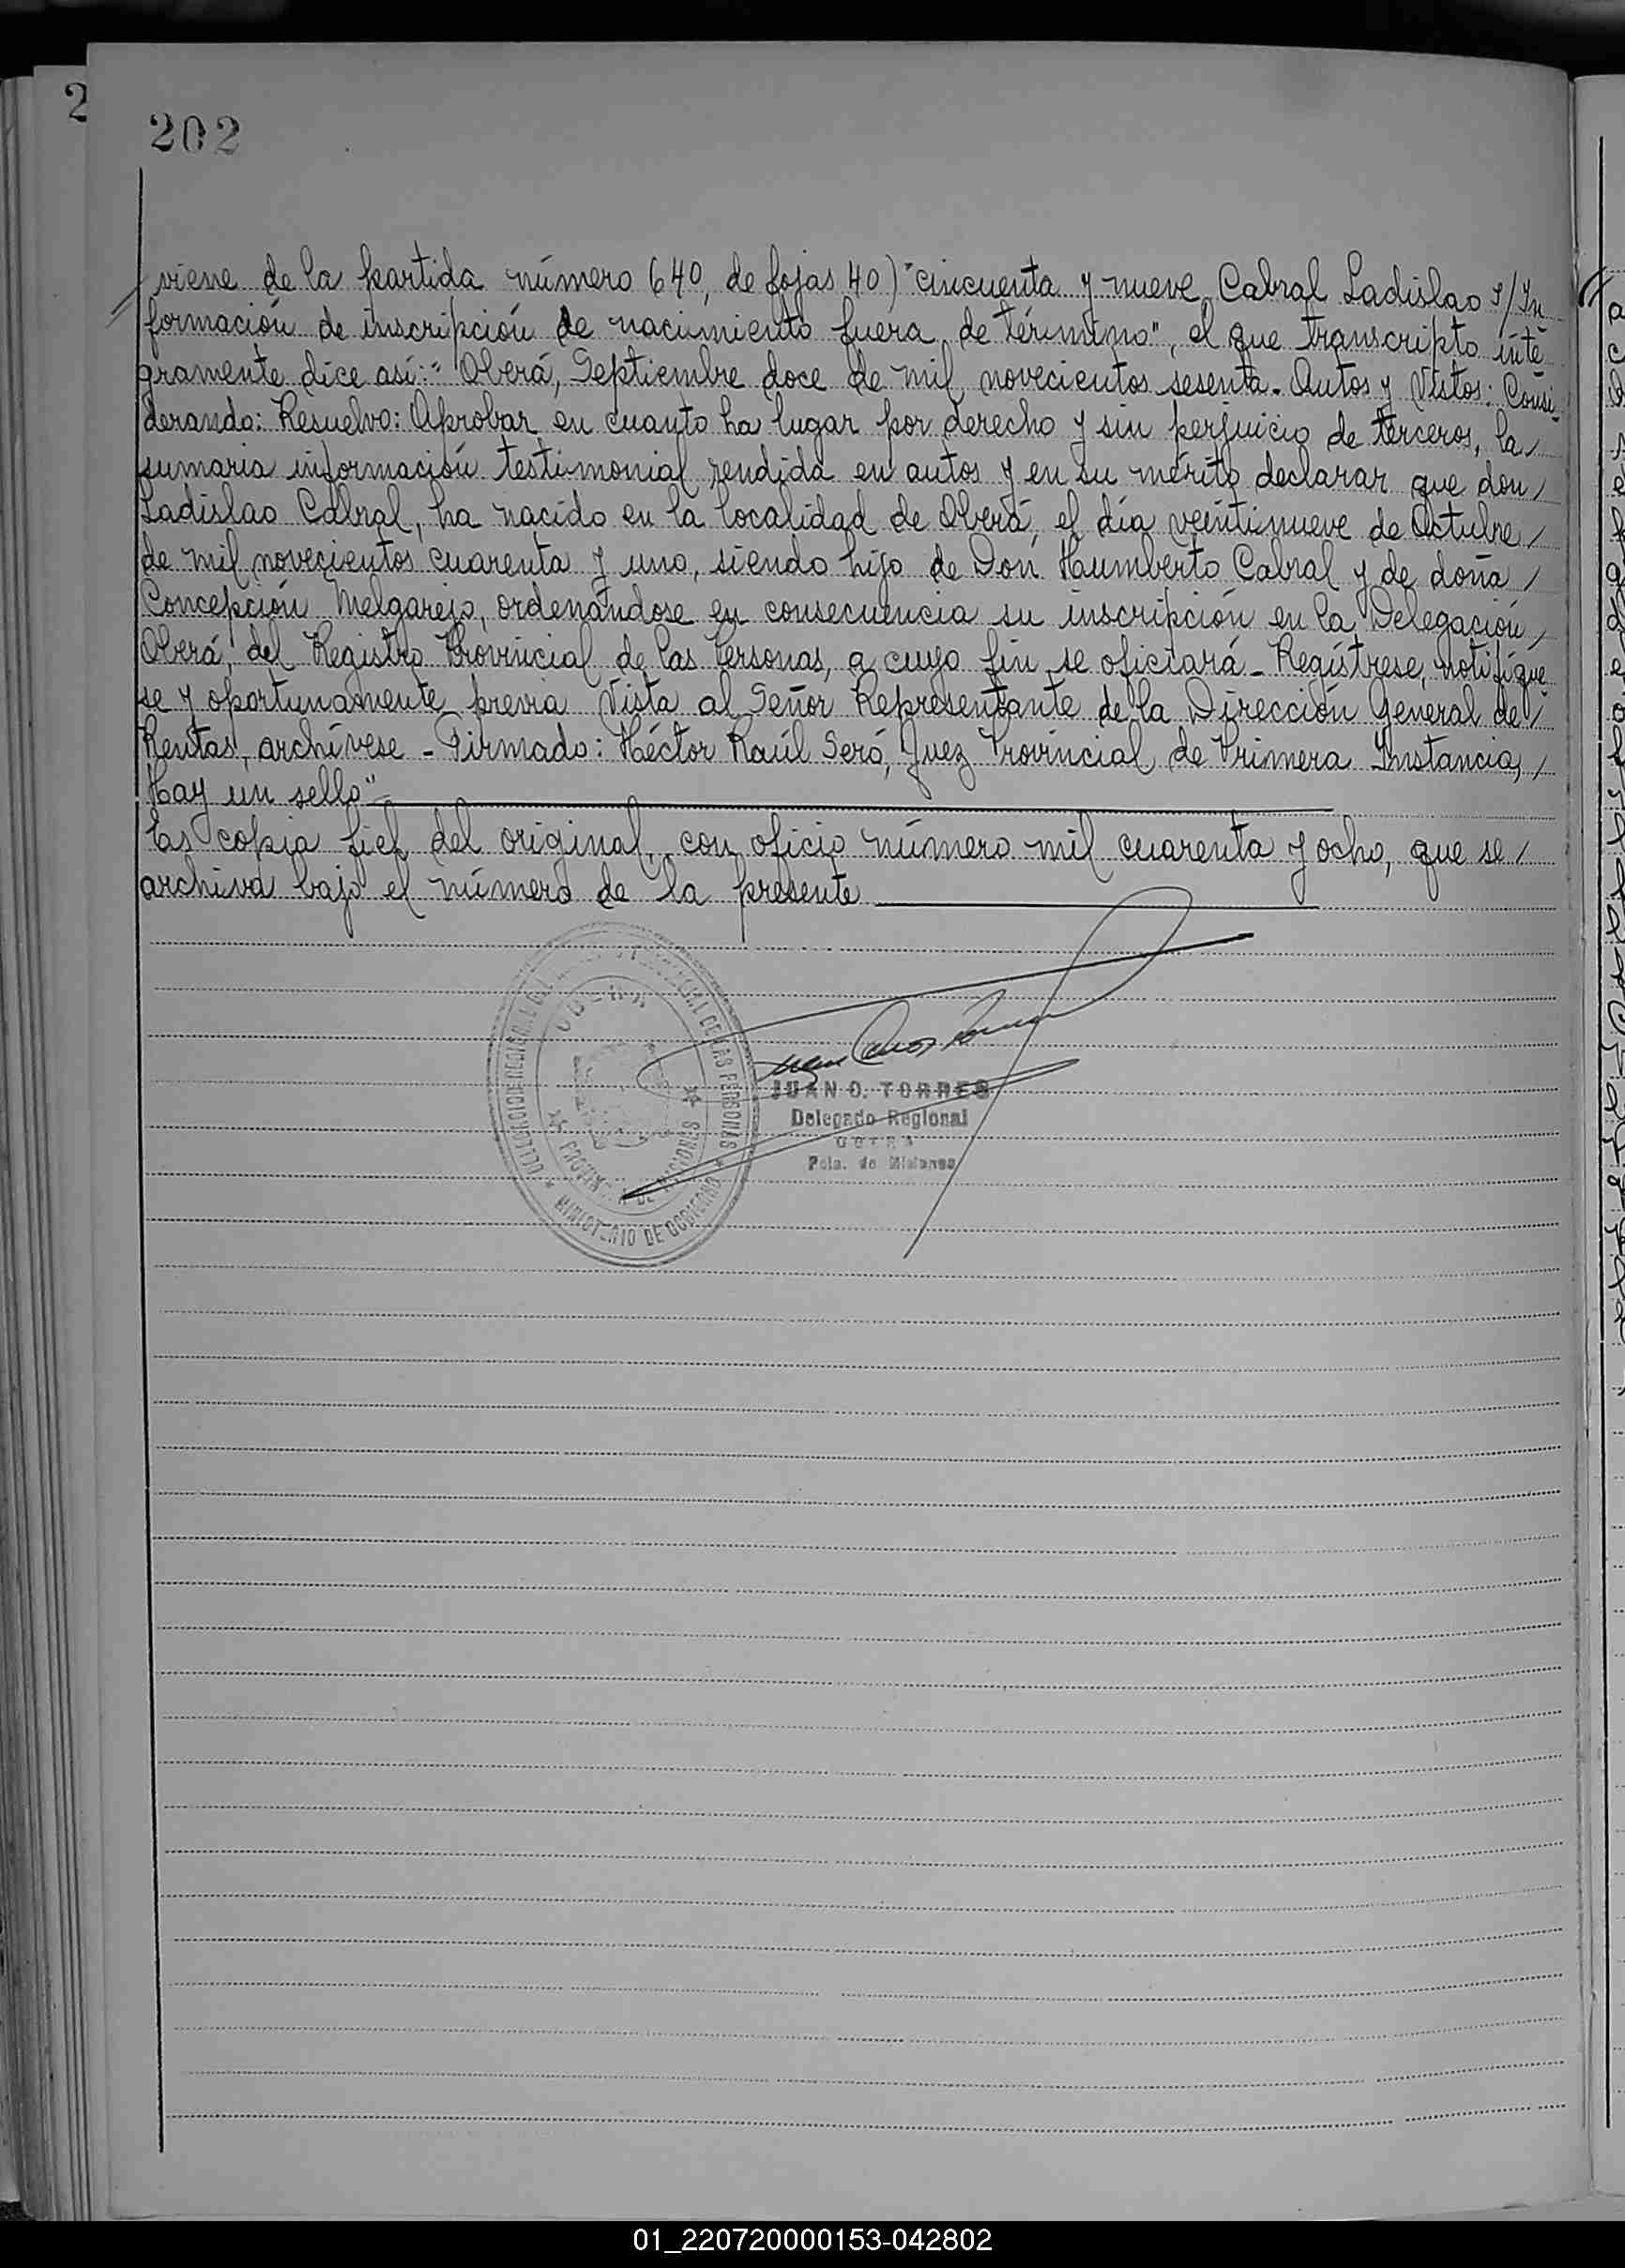 2
202
viene de la partida número 640, de fojas 40) "cincuenta y nueve, Cabral Ladislao s/In
formación de inscripción de nacimiento fuera de término", el que transcripto inte
gramente dice así:" Oberá, Septiembre doce de mil novecientos sesenta. Autos y Vistos: Consi
derando: Resuelvo: Aprobar en cuanto ha lugar por derecho y sin perjuicio de terceros, la/
sumaria información testimonial rendida en autos y en su mérito declarar que don/
Ladislao Cabral, ha nacido en la localidad de Oberá, el día veintinueve de Octubre/
de mil novecientos cuarenta y uno, siendo hijo de Don Humberto Cabral y de doña/
Concepción Melgarejo, ordenándose en consecuencia su inscripción en la Delegación/
Oberá, del Registro Provincial de las Personas, a cuyo fin se oficiará- Regístrese, notifíque
se y oportunamente previa Vista al Señor Representante de la Dirección General de/
Rentas, archívese - Firmado: Héctor Raúl Seró, Juez Provincial de Primera Instancia,/
Hay un sello"
Es copia fiel del original, con oficio número mil cuarenta y ocho, que se/
archiva bajo el número de la presente
DE LAS PERSONAS
OBERA
MINISTERIO DE GOBIERNO
JUAN O. TORRES
Delegado Regional
OBERA
Pcia. de Misiones
01_220720000153-042802